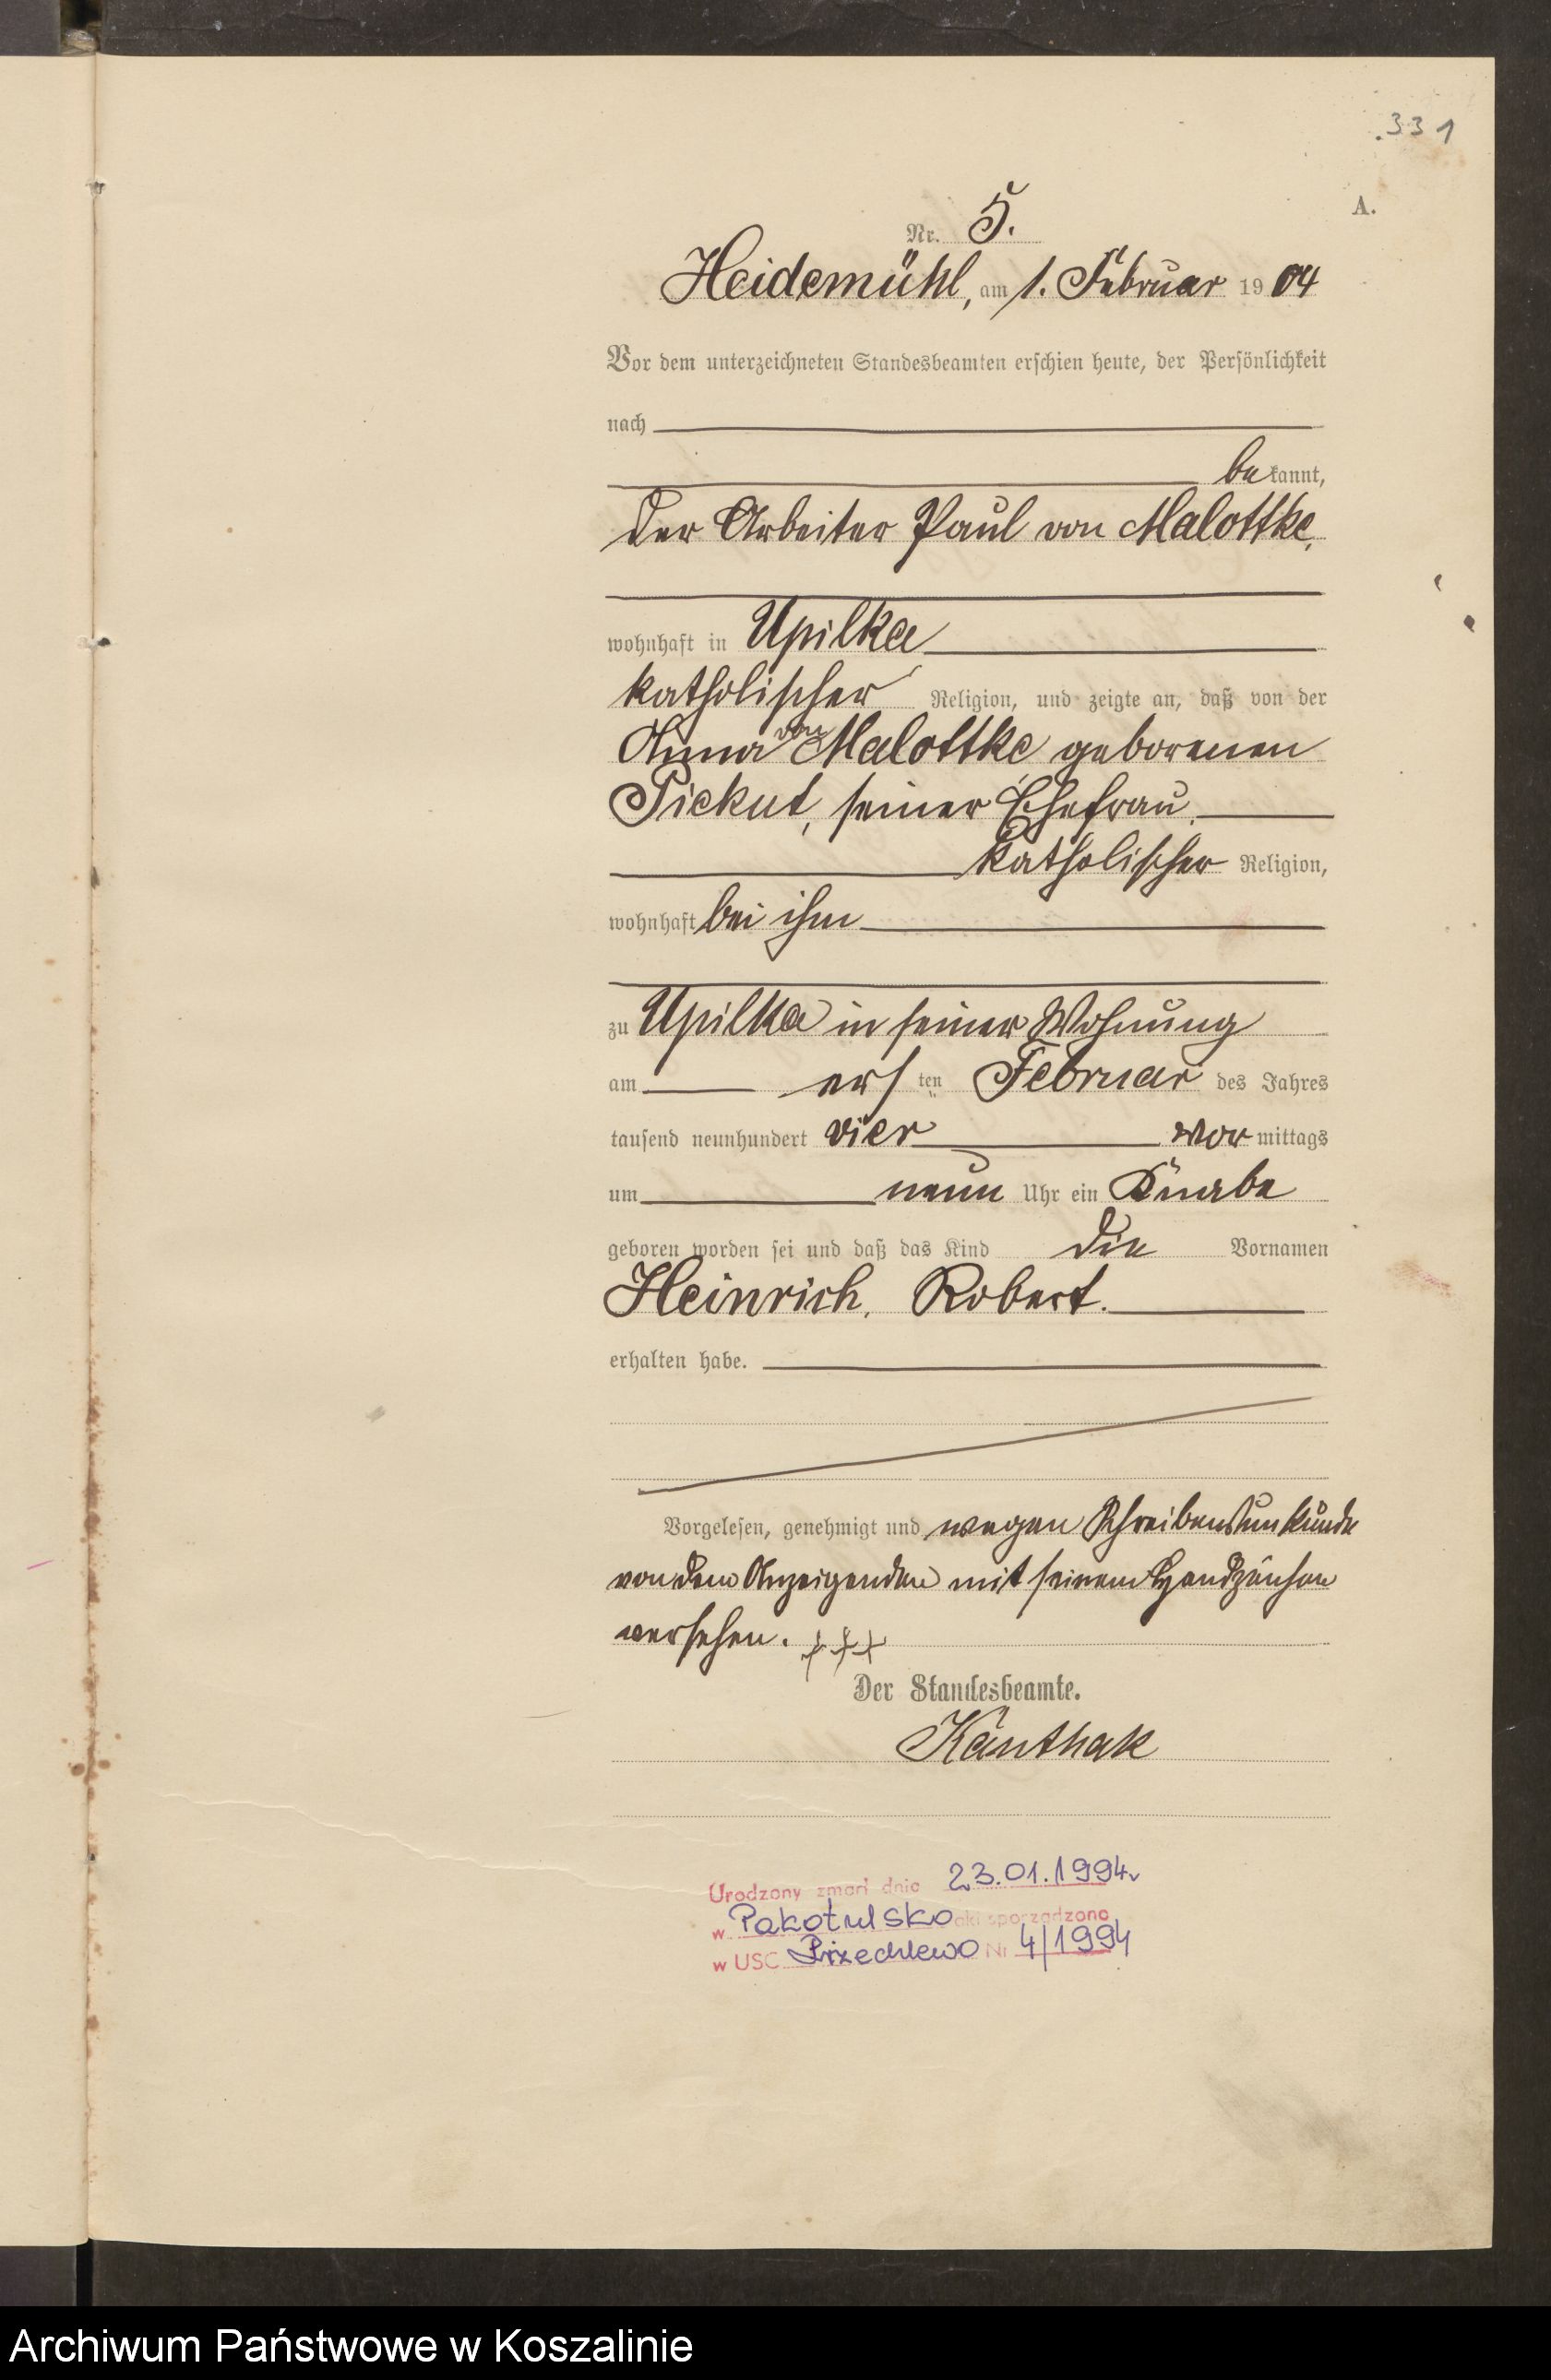 331
A.
Nr. 5.
Heidemühl, am 1. Februar 1904
Vor dem unterzeichneten Standesbeamten erschien heute, der Persönlichkeit
nach
bekannt,
der Arbeiter Paul von Malottke,
wohnhaft in Upilka
katholischer Religion, und zeigte an, daß von der
Anna von Malottke geborenen
Pickut, seiner Ehefrau,
katholischer Religion,
wohnhaft bei ihm
zu Upilka in seiner Wohnung
am ersten Februar des Jahres
tausend neunhundert vier vormittags
um neun Uhr ein Knabe
geboren worden sei und daß das Kind die Vornamen
Heinrich, Robert.
erhalten habe.
Vorgelesen, genehmigt und wegen Schreibensunkunde
von dem Anzeigenden mit seinem Handzeichen
versehen. +++
Der Standesbeamte.
Kanthak
Urodzony zmarł dnia 23.01.1994r
w Pakotulsko akt sporządzono
w USC Przechlewo Nr 4/1994
Archiwum Państwowe w Koszalinie